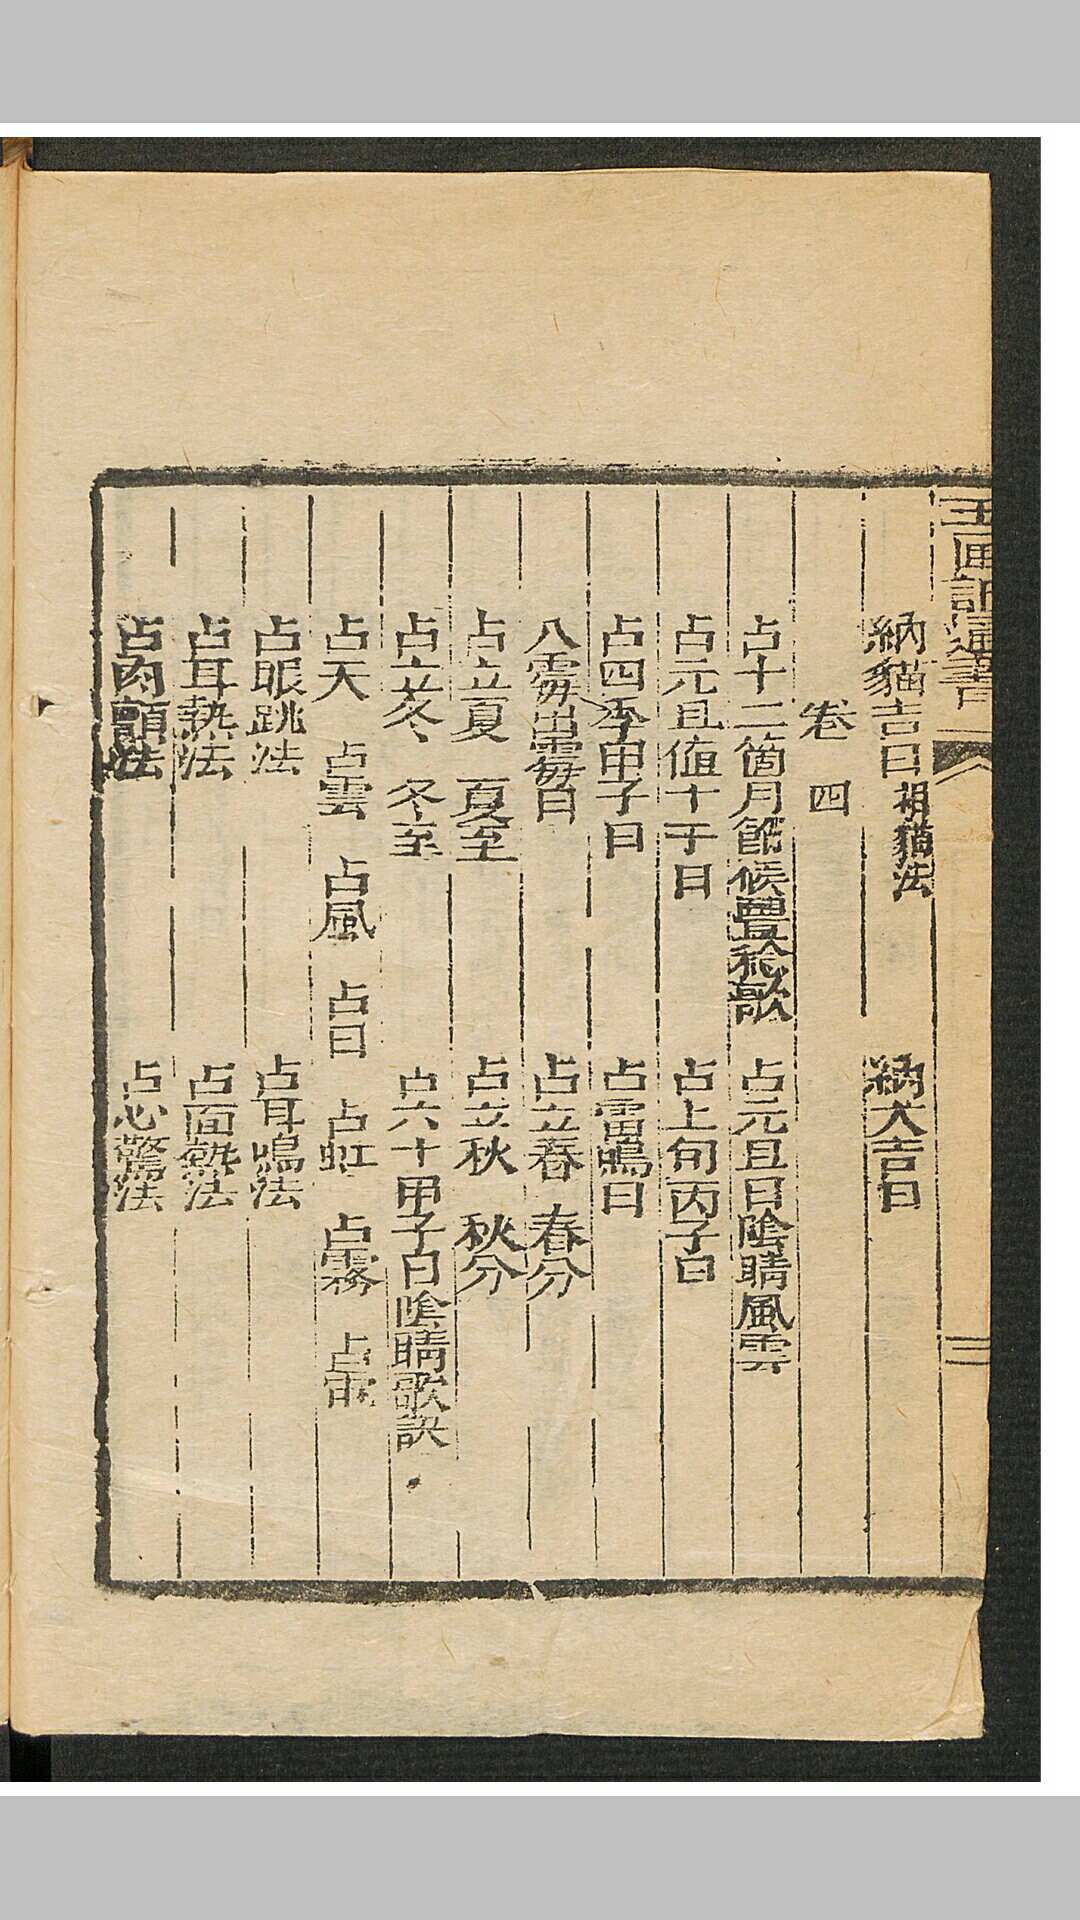 納貓吉日 相貓法 納犬吉日
卷四
占十二箇月節候豐稔歌 占元旦日陰晴風雲
占元旦值十干日 占上旬丙子日
占四季甲子日 占雷鳴日
八霉出霉日 占立春 春分
占立夏 夏至 占立秋 秋分
占立冬 冬至 占六十甲子日陰晴歌訣
占天 占雲 占風 占日 占虹 占霧 占雷
占眼跳法 占耳鳴法
占耳熱法 占面熱法
占肉顫法 占心驚法
通書
二